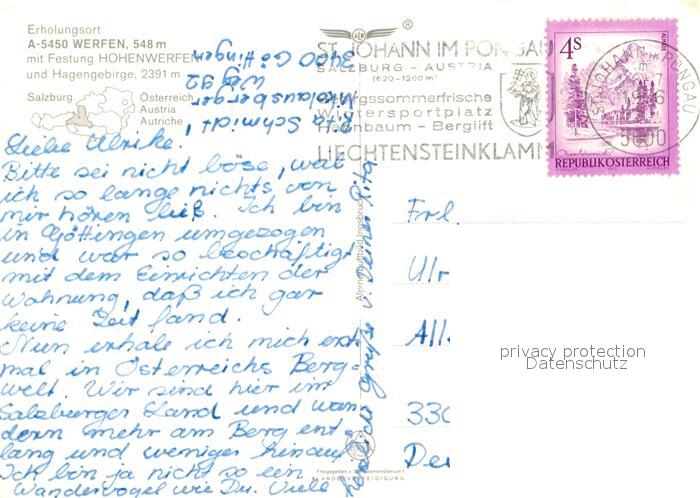 Erholungsort
A-5450 WERFEN, 548 m
mit Festung HOHENWERFEN
und Hagengebirge, 2391 m
Salzburg
Österreich
Austria
Autriche
Rita Schmidt,
Nikolausberger
Weg 92
3400 Göttingen
Liebe Ulrike,
Bitte sei nicht böse, weil
ich so lange nichts von
mir hören ließ. Ich bin
in Göttingen umgezogen
und war so beschäftigt
mit dem Einrichten der
Wohnung, daß ich gar
keine Zeit fand.
Nun erhole ich mich erst
mal in Österreichs Berg-
welt. Wir sind hier im
Salzburger Land und wan
dern mehr am Berg ent-
lang und weniger hinauf
Ich bin ja nicht so ein
Wandervogel wie Du. Viele
herzliche Grüße v. Deiner Rita
®
ST. JOHANN IM PONGAU
SALZBURG - AUSTRIA
(620-1200m)
Wintersportplatz
Hahnbaum - Berglift
LIECHTENSTEINKLAMM
4S
REPUBLIK ÖSTERREICH
ST. JOHANN PONGAU
5600
Frl.
Ulr
All
330
Der
privacy protection
Datenschutz